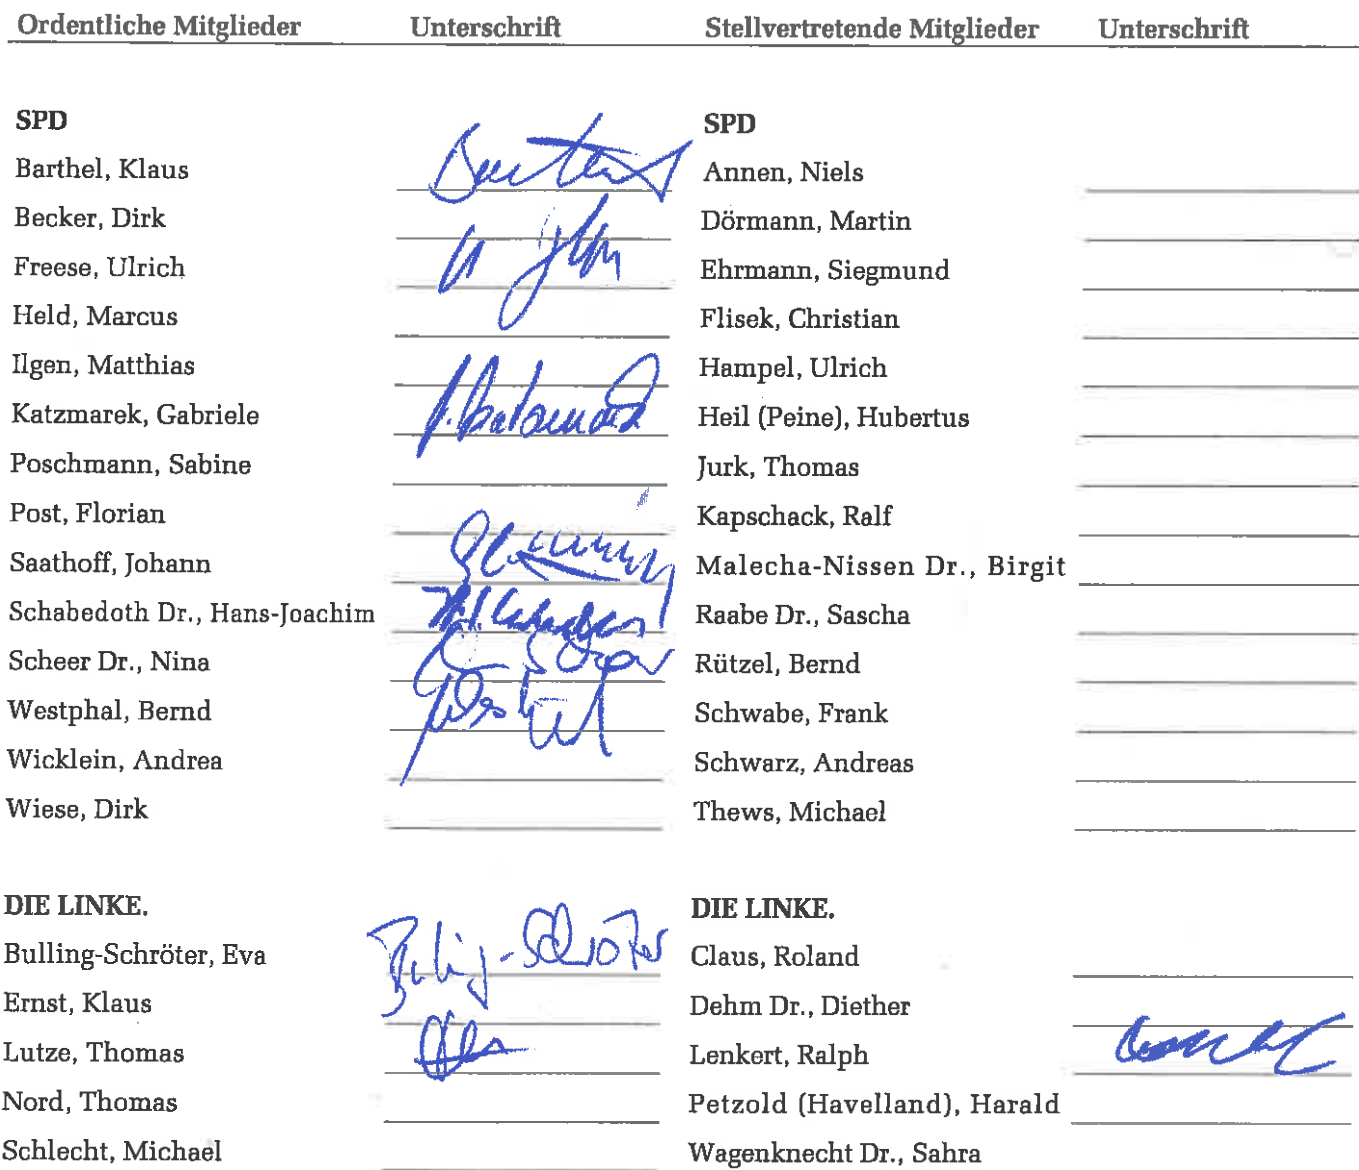 Ordentliche Mitglieder Unterschrift Stellvertretende Mitglieder Unterschrift
SPD SPD
Barthel, Klaus Annen, Niels
Becker, Dirk Dörmann, Martin
Freese, Ulrich Ehrmann, Siegmund
Held, Marcus Flisek, Christian
Ilgen, Matthias Hampel, Ulrich
Katzmarek, Gabriele Heil (Peine), Hubertus
Poschmann, Sabine Jurk, Thomas
Post, Florian Kapschack, Ralf
Saathoff, Johann Malecha-Nissen Dr., Birgit
Schabedoth Dr., Hans-Joachim Raabe Dr., Sascha
Scheer Dr., Nina Rützel, Bernd
Westphal, Bernd Schwabe, Frank
Wicklein, Andrea Schwarz, Andreas
Wiese, Dirk Thews, Michael
DIE LINKE. DIE LINKE.
Bulling-Schröter, Eva Bulling-Schröter Claus, Roland
Ernst, Klaus Dehm Dr., Diether
Lutze, Thomas Lenkert, Ralph
Nord, Thomas Petzold (Havelland), Harald
Schlecht, Michael Wagenknecht Dr., Sahra